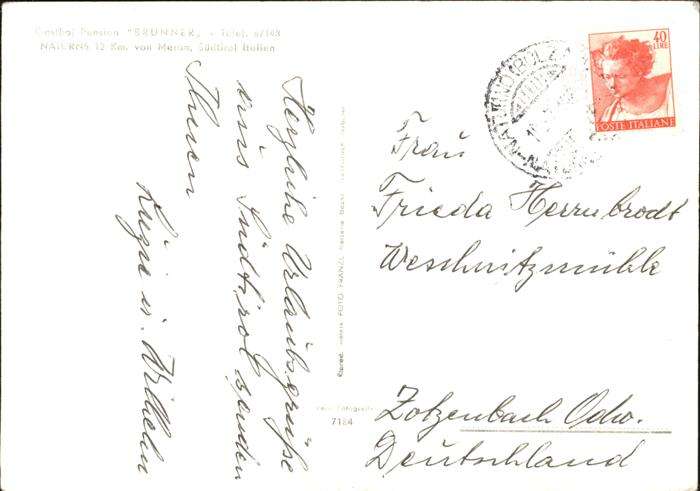 Gasthof Pension "BRUNNER" - Telef. 6/148
NATURNS 12 Km. von Meran, Südtirol Italien
Herzliche Urlaubsgrüße
aus Südtirol senden
Ihnen
u. Wilhelm
FOTO FRANZL
7184
40
LIRE
POSTE ITALIANE
Frau
Frieda Herrnbrodt
Weschnitzmühle
Zotzenbach Odw.
Deutschland